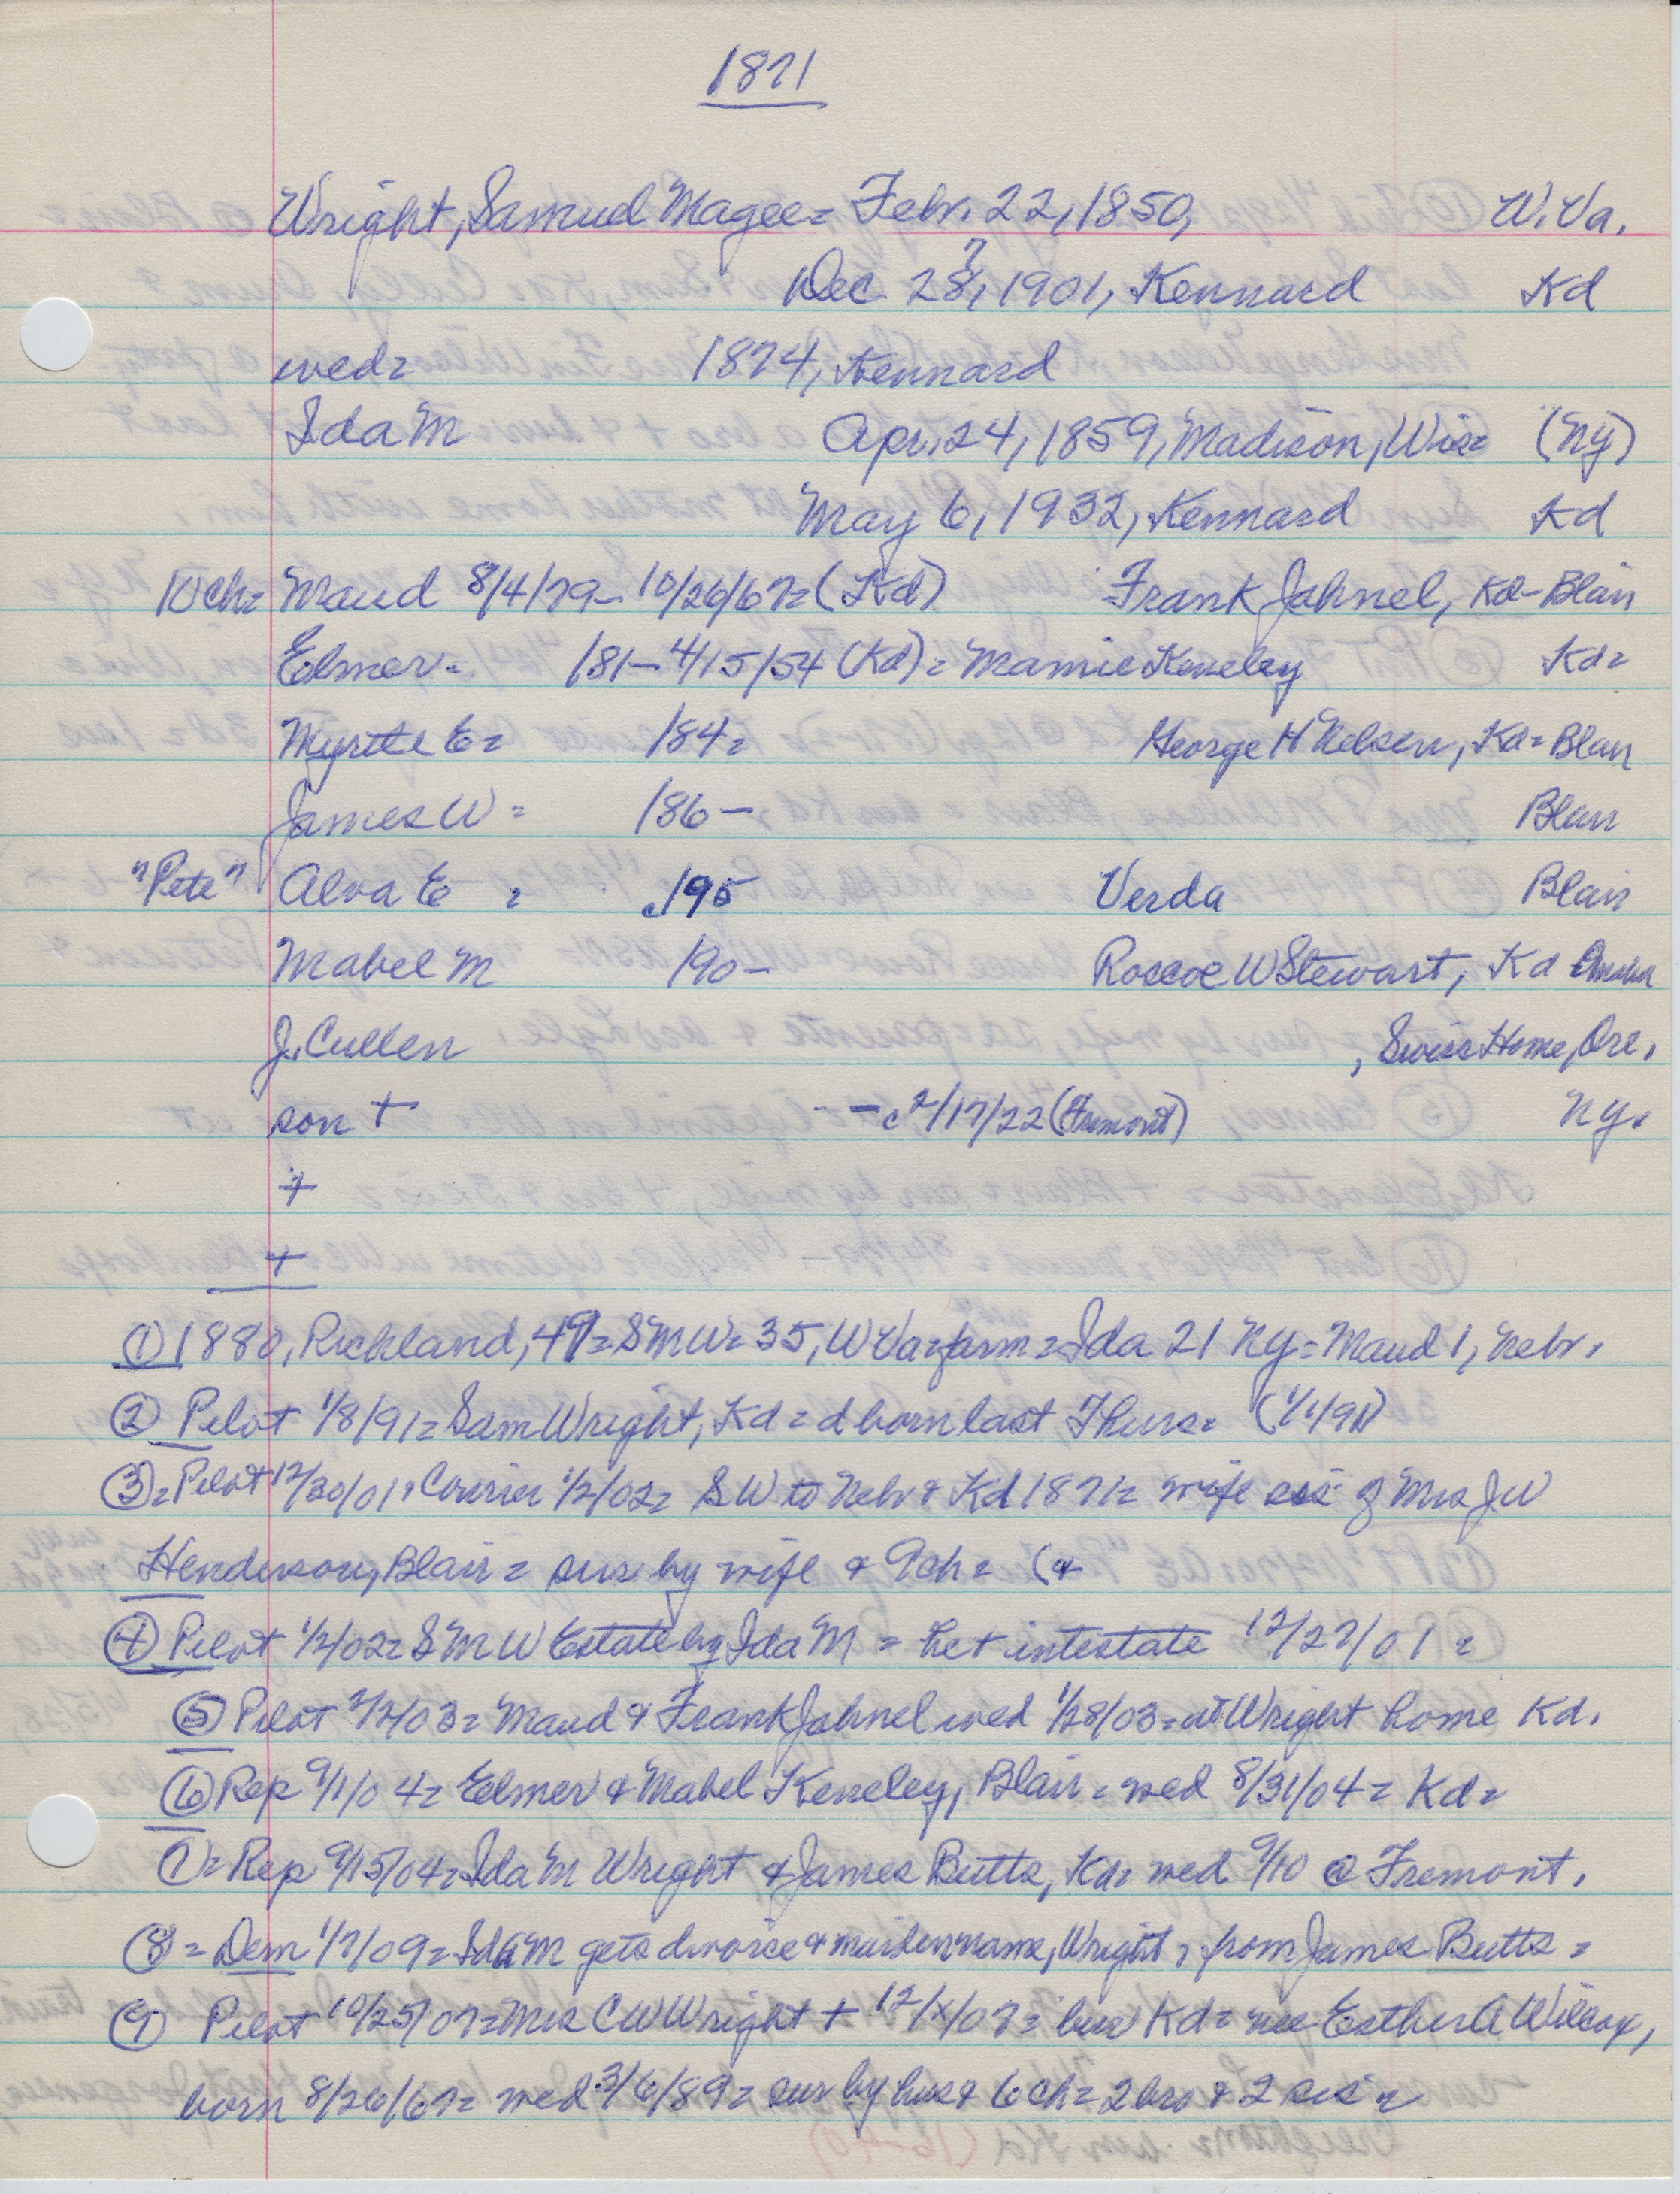 1871
Wright, Samuel Magee = Febr. 22, 1850, W.Va.
Dec 28, 1901, Kennard Kd
7
wed = 1874, Kennard
Ida M Apr. 24, 1859, Madison, Wis = (Ny)
May 6, 1932, Kennard Kd
10 ch = Maud 8/4/79 - 10/26/67 = (Kd) Frank Jahnel, Kd - Blair
Elmer = /81 - 4/15/54 (Kd) = Mamie Keneley Kd =
Myrtle E = /84 = George H Nelsen, Kd = Blair
James W = /86 - Blair
"Pete" Alva E = c/95 Verda Blair
Mabel M /90 - Roscoe W Stewart, Kd Omaha
J. Cullen , Swiss Home, Ore.
son + - c 2/17/22 (Fremont) Ny.
+
+
① 1880, Richland, 49 = SMW = 35, W Va = farm = Ida 21 Ny = Maud 1, Nebr.
② Pilot 1/8/91 = Sam Wright, Kd = d born last Thurs = (1/1/91)
③ = Pilot 12/30/01, Courier 1/2/02 = SW to Nebr & Kd 1871 = wife sis of Mrs JW
Henderson, Blair = sur by wife & 9 ch = (&
④ Pilot 1/2/02 = SMW Estate by Ida M = he + intestate 12/27/01 =
⑤ Pilot 2/2/03 = Maud & Frank Jahnel wed 1/28/03 = at Wright home Kd.
⑥ Rep 9/1/04 = Elmer & Mabel Keneley, Blair = wed 8/31/04 = Kd =
⑦ = Rep 9/15/04 = Ida M Wright & James Butts, Kd = wed 9/10 @ Fremont.
⑧ = Dem 1/7/09 = Ida M gets divorce & maiden name, Wright, from James Butts =
⑨ Pilot 10/25/07 = Mrs CW Wright + 12/x/07 = bur Kd = nee Esther A Wilcox,
born 8/26/67 = wed 3/6/89 = sur by hus & 6 ch = 2 bro & 2 sis =